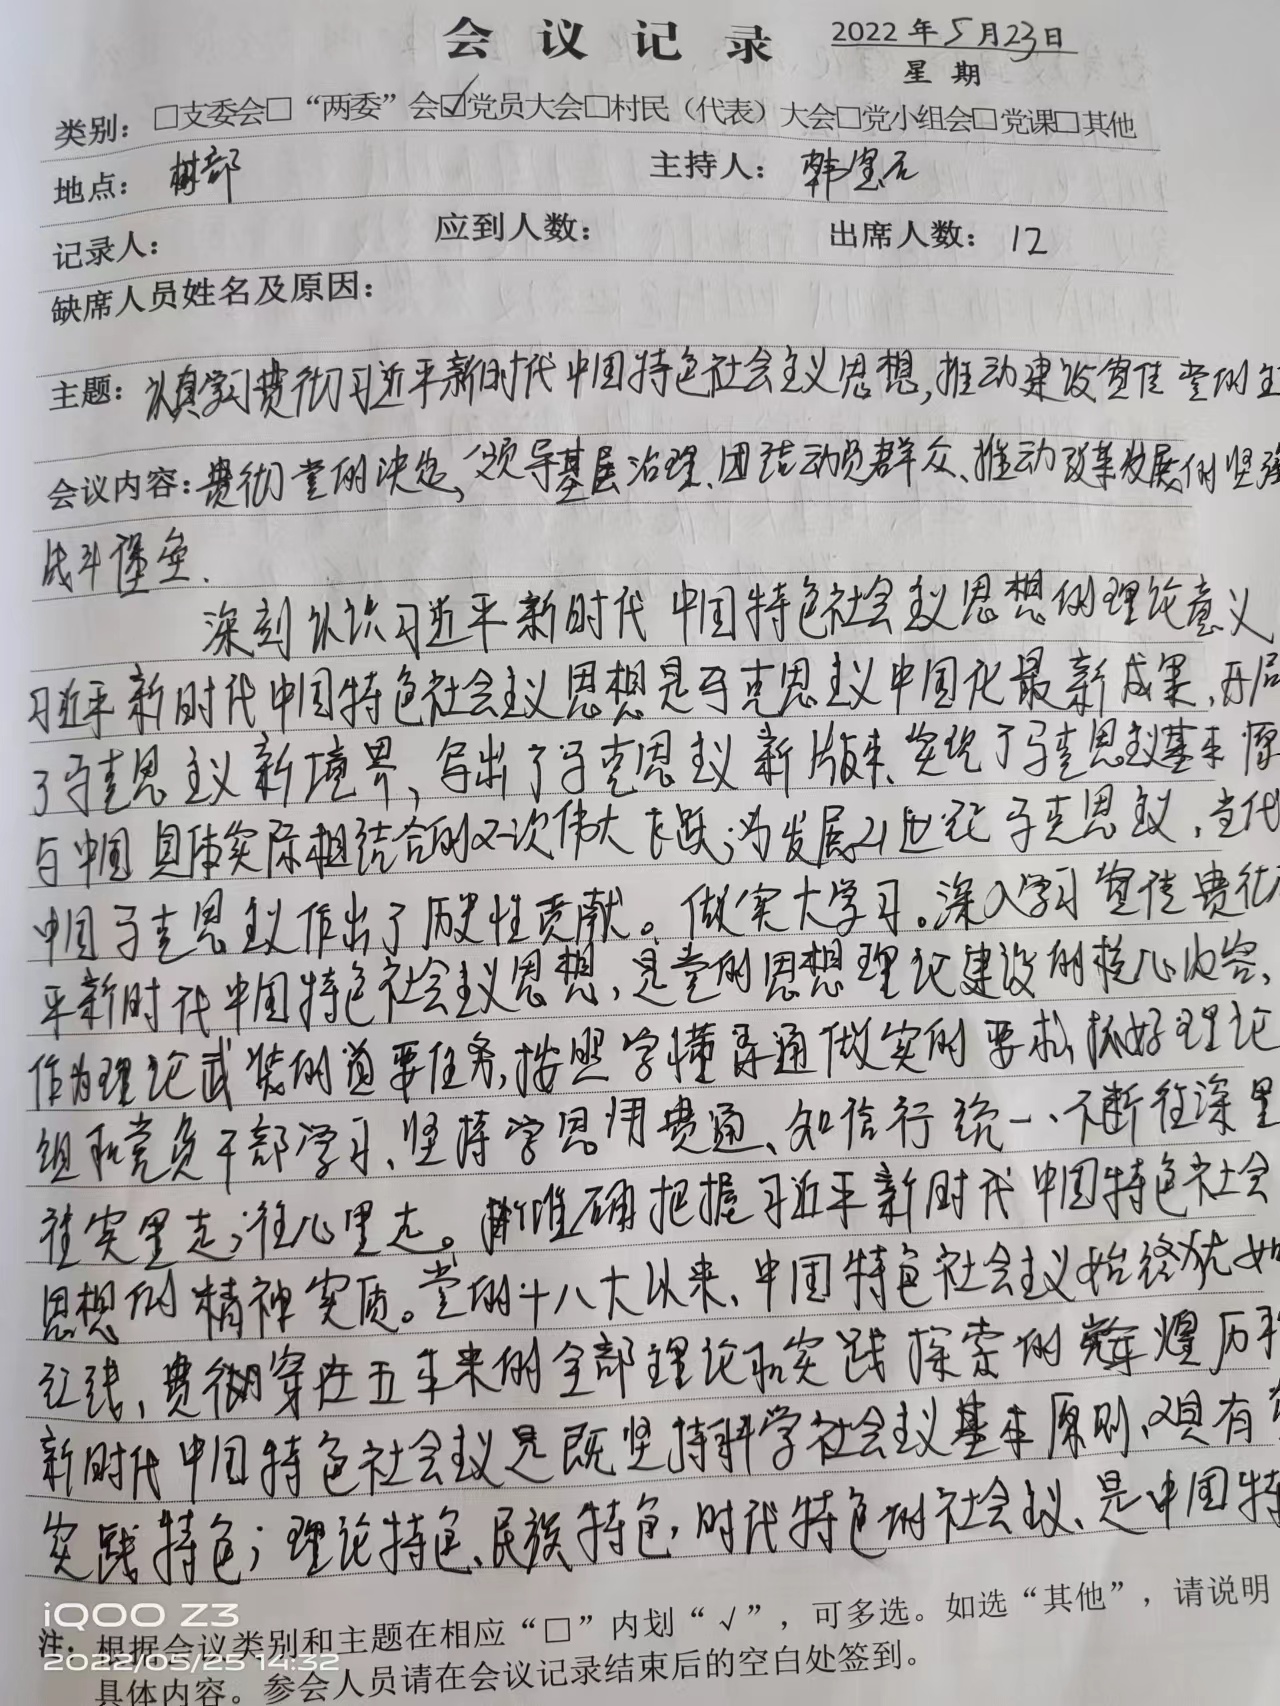 会议记录 2022年5月23日
星期
类别：□支委会□“两委”会☑党员大会□村民（代表）大会□党小组会□党课□其他
地点：村部 主持人：韩
记录人： 应到人数： 出席人数：12
缺席人员姓名及原因：
主题：认真学习贯彻习近平新时代中国特色社会主义思想，推动建设宣传党的主
会议内容：贯彻党的决定、领导基层治理、团结动员群众、推动改革发展的坚强
战斗堡垒、
深刻认识习近平新时代中国特色社会主义思想的理论意义
习近平新时代中国特色社会主义思想是马克思主义中国化最新成果，开启
了马克思主义新境界，写出了马克思主义新版本、实现了马克思主义基本原
与中国具体实际相结合的又一次伟大飞跃；为发展21世纪马克思主义，当代
中国马克思主义作出了历史性贡献。做实大学习。深入学习宣传贯彻
平新时代中国特色社会主义思想，是党的思想理论建设的核心内容，
作为理论武装的首要任务，按照学懂弄通做实的要求，抓好理论
组和党员干部学习、坚持学思用贯通、知信行统一、不断往深里
往实里走；往心里走。准确把握习近平新时代中国特色社会
思想的精神实质。党的十八大以来、中国特色社会主义始终犹如
红线，贯彻穿在五年来的全部理论和实践探索的辉煌历程
新时代中国特色社会主义是既坚持科学社会主义基本原则、又具有
实践特色；理论特色、民族特色，时代特色的社会主义、是中国特
iQOO Z3
注：根据会议类别和主题在相应“□”内划“√”，可多选。如选“其他”，请说明
2022/05/25 14:32
具体内容。参会人员请在会议记录结束后的空白处签到。